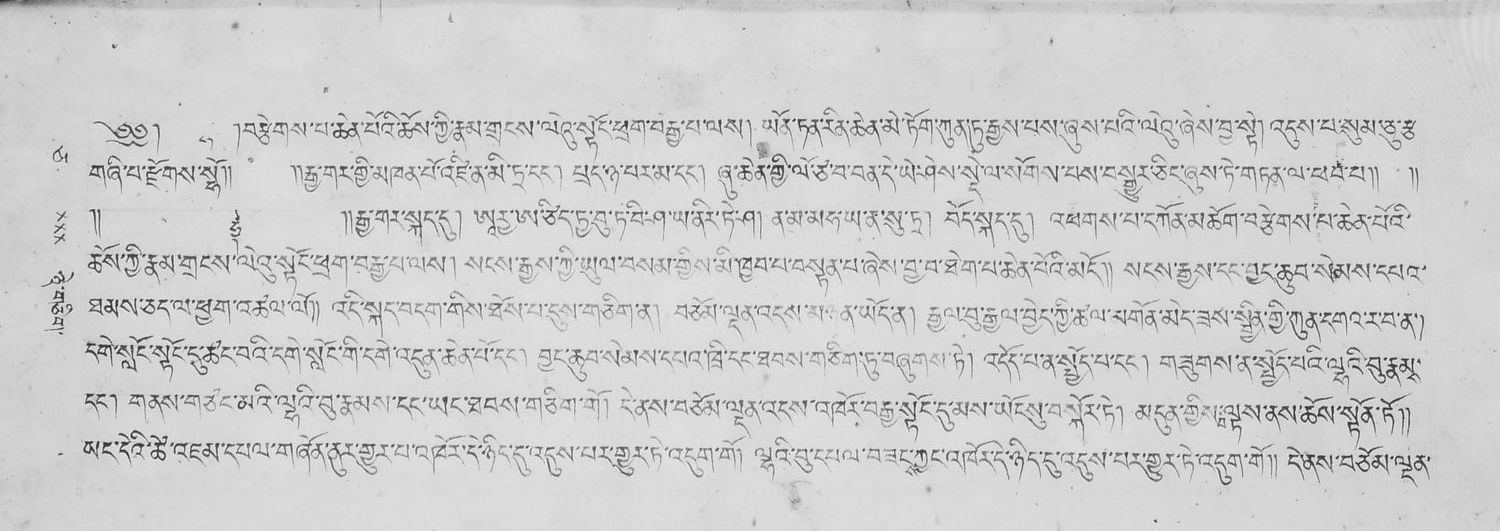 ༄༅། །བརྩེགས་པ་ཆེན་པོའི་ཆོས་ཀྱི་རྣམ་གྲངས་ལེའུ་སྟོང་ཕྲག་བརྒྱ་པ་ལས། ཡོན་ཏན་རིན་ཆེན་མེ་ཏོག་ཀུན་ཏུ་རྒྱས་པས་ཞུས་པའི་ལེའུ་ཞེས་བྱ་སྟེ། འདུས་པ་སུམ་ཅུ་རྩ་
གཞི་པ་རྫོགས་སྷོ།། །།རྒྱ་གར་གྱི་མཁན་པོ་འཛི་ན་མི་ཏྲ་དང། པྲད་ཉ་པར་མ་དང། ཞུ་ཆེན་གྱི་ལོ་ཙ་བ་བན་དེ་ཡེ་ཤེས་སྡེ་ལ་སོགས་པས་བསྒྱུར་ཅིང་ཞུས་ཏེ་གཏན་ལ་ཕབ་པ།། །།
།། །།རྒྱ་གར་སྐད་དུ། ཨརྱ་ཨ་ཙིད་ཏྱ་བུ་ཏ་བི་ཤ་ཡ་ནིར་ཏེ་ཤ། ན་མ་མཧ་ཡ་ན་སུ་ཏྲ། བོད་སྐད་དུ། འཕགས་པ་དཀོན་མཆོག་བརྩེགས་པ་ཆེན་པོའི་
ཆོས་ཀྱི་རྣམ་གྲངས་ལེའུ་སྟོང་ཕྲག་བརྒྱ་པ་ལས། སངས་རྒྱས་ཀྱི་ཡུལ་བསམ་གྱིས་མི་ཁྱབ་པ་བསྟན་པ་ཞེས་བྱ་བ་ཐེག་པ་ཆེན་པོའི་མདོ།། སངས་རྒྱས་དང་བྱང་ཆུབ་སེམས་དཔའ་
ཐམས་ཅད་ལ་ཕྱག་འཚལ་ལོ།། འདི་སྐད་བདག་གིས་ཐོས་པ་དུས་གཅིག་ན། བཅོམ་ལྡན་འདས་མཉན་ཡོད་ན། རྒྱལ་བུ་རྒྱལ་བྱེད་ཀྱི་ཚལ་མགོན་མེད་ཟས་སྦྱིན་གྱི་ཀུན་དགའ་ར་བ་ན།
དགེ་སློང་སྟོང་དུ་ཚང་བའི་དགེ་སློང་གི་དགེ་འདུན་ཆེན་པོ་དང། བྱང་ཆུབ་སེམས་དཔའ་ཁྲི་དང་ཐབས་གཅིག་ཏུ་བཞུགས་ཏེ། འདོད་པ་ན་སྤྱོད་པ་དང། གཟུགས་ན་སྤྱོད་པའི་ལྷའི་བུ་རྣམས་
དང། གནས་གཙང་མའི་ལྷའི་བུ་རྣམས་དང་ཡང་ཐབས་གཅིག་གོ། དེ་ནས་བཅོམ་ལྡན་འདས་འཁོར་བརྒྱ་སྟོང་དུ་མས་ཡོངསུ་བསྐོར་ཏེ། མདུན་གྱིས་ལྟས་ནས་ཆོས་སྟོན་ཏོ།།
ཡང་དེའི་ཚེ་འཇམ་དཔལ་གཞོན་ནུར་གྱུར་པ་འཁོར་དེ་ཉིད་དུ་འདུས་པར་གྱུར་ཏེ་འདུག་གོ། ལྷའི་བུ་དཔལ་བཟང་ཀྱང་འཁོར་དེ་ཉིད་དུ་འདུས་པར་གྱུར་ཏེ་འདུག་གོ།། དེ་ནས་བཅོམ་ལྡན་